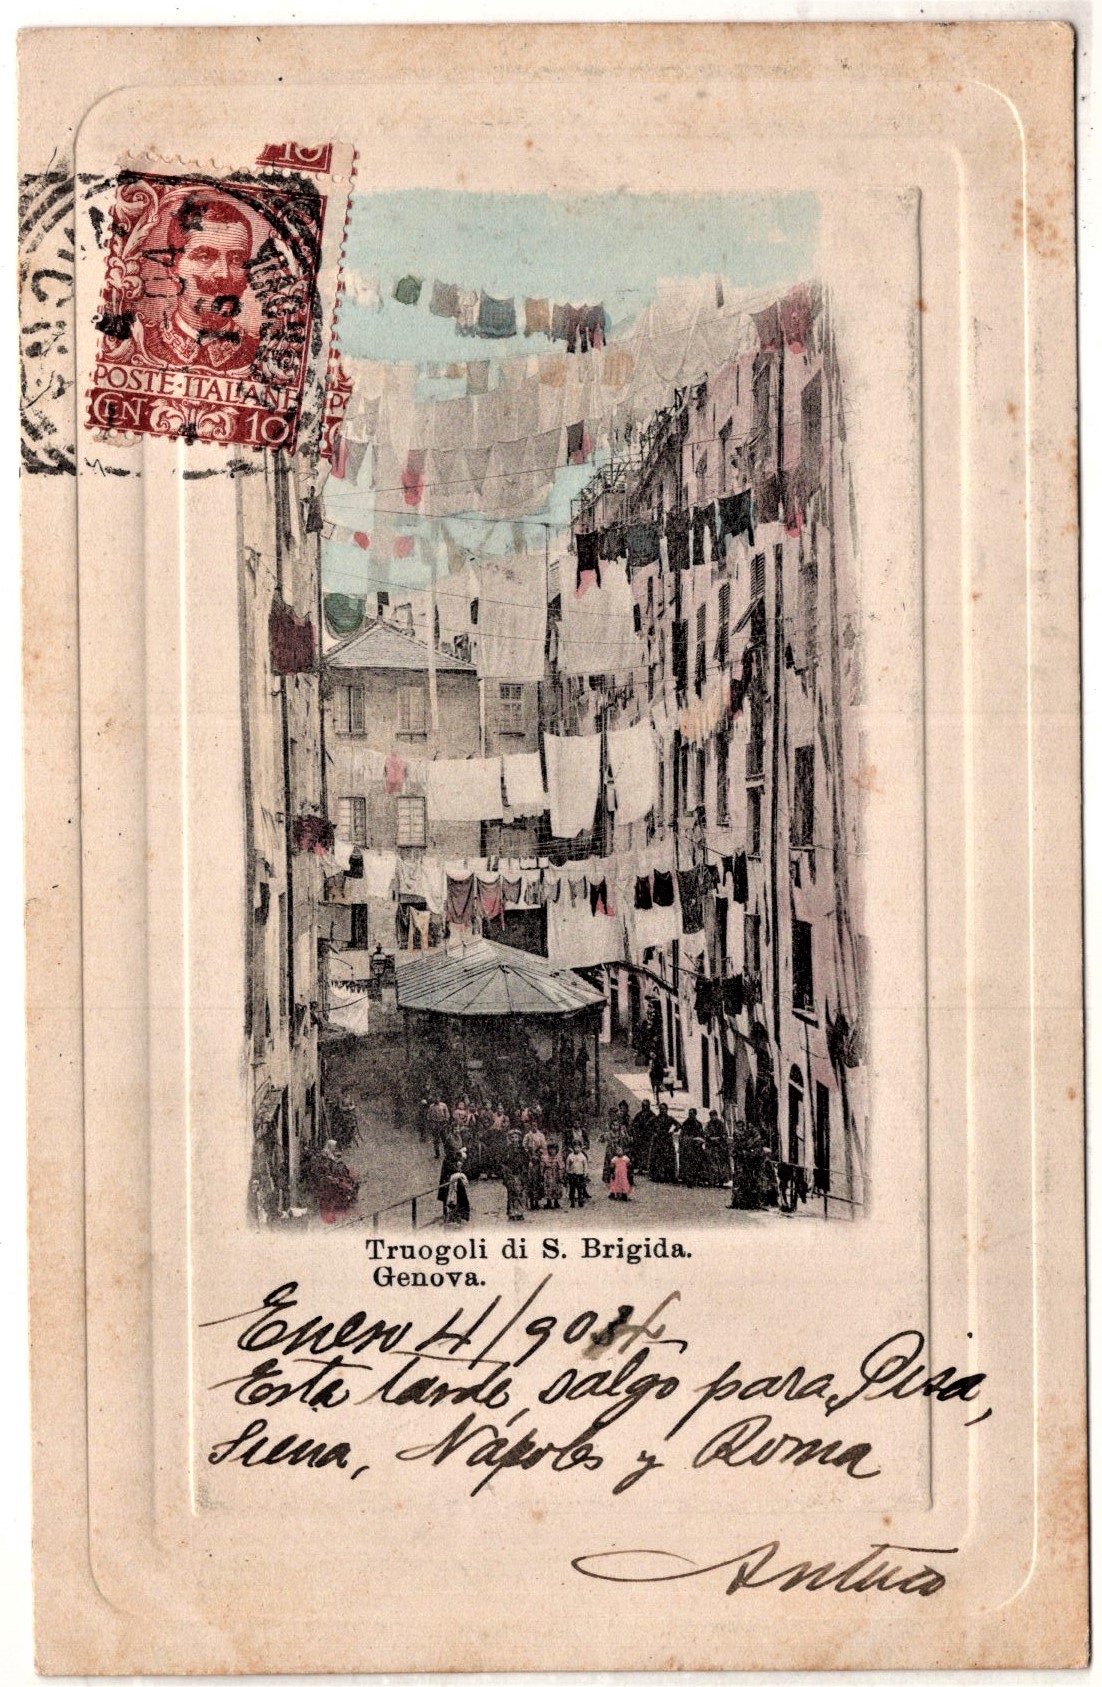 10
POSTE·ITALIANE
CEN 10
Truogoli di S. Brigida.
Genova.
Enero 4/904
Esta tarde, salgo para Pisa,
Siena, Nápoles y Roma
Antuco